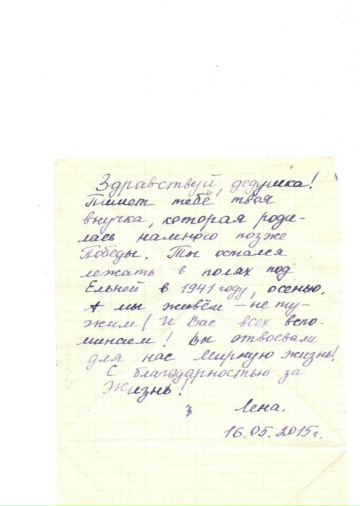 Здравствуй, дедушка!
Пишет тебе твоя
внучка, которая роди-
лась намного позже
Победы. Ты остался
лежать в полях под
Ельней в 1941 году, осенью.
А мы живём – не ту-
жим! И Вас всех вспо-
минаем! Вы отвоевали
для нас мирную жизнь!
С благодарностью за
жизнь!
Лена.
16.05.2015г.